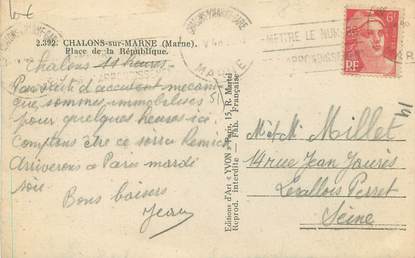 2.392. CHALONS-sur-MARNE (Marne).
Place de la République.
Chalons 11 heures
Par suite d'accident mécani
que, sommes immobilisés
pour quelques heures ici.
Comptons être ce soir
Arriverons à Paris mardi
soir.
Bons baisers
Jean
Editions d'Art "YVON" Paris, 15, R. Martel
Reprod. Interdite — Fab. Française
CHALONS S MARNE
MARNE
METTRE LE NUM
ARRONDISSEM
6F
RF
M. et Mme Millet
14 rue Jean Jaurès
Levallois Perret
Seine
14